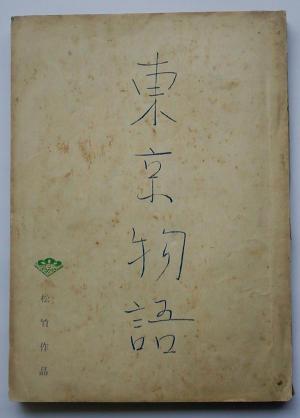 東京物語
松竹作品